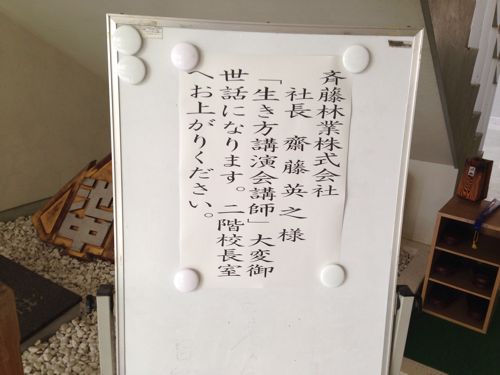 斉藤林業株式会社
社長 齋藤英之様
「生き方講演会講師」大変御
世話になります。二階校長室
へお上がりください。